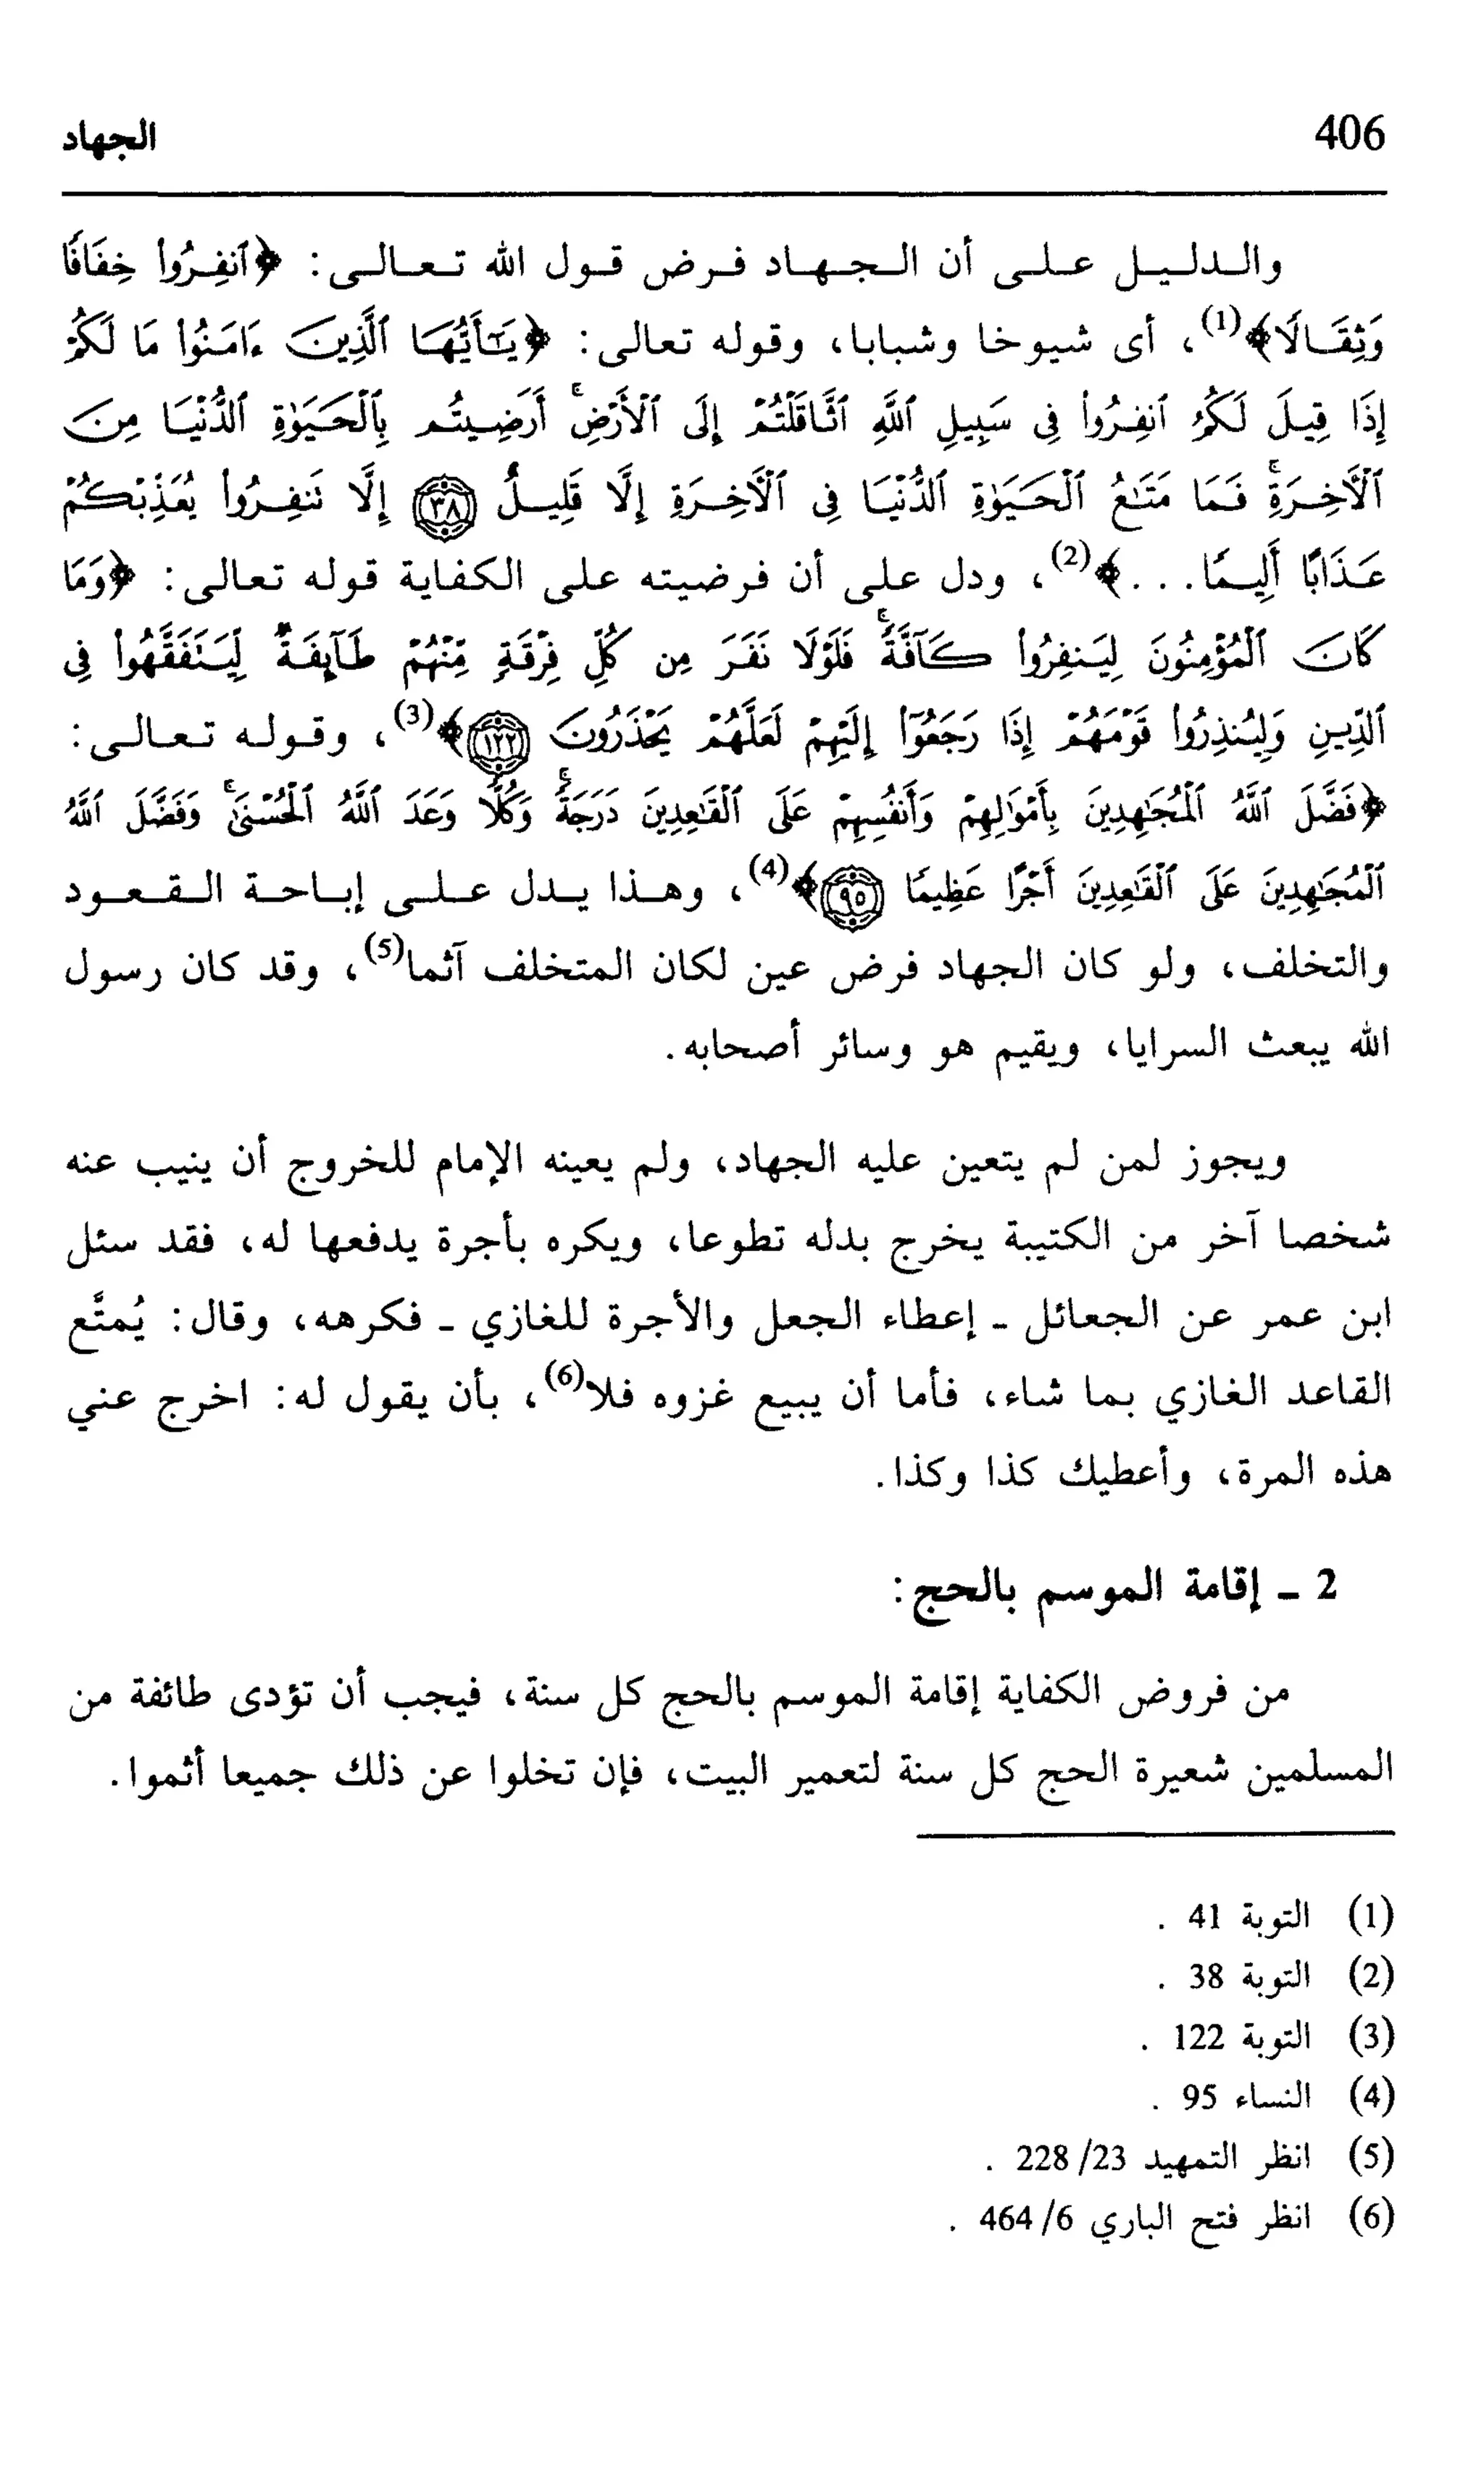 406
الجهاد
والدليل على أن الجهاد فرض قول الله تعالى: ﴿ٱنفِرُوا۟ خِفَافًا
وَثِقَالًا﴾(1)، أى شيوخا وشبابا، وقوله تعالى: ﴿يَـٰٓأَيُّهَا ٱلَّذِينَ ءَامَنُوا۟ مَا لَكُمْ
إِذَا قِيلَ لَكُمُ ٱنفِرُوا۟ فِى سَبِيلِ ٱللَّهِ ٱثَّاقَلْتُمْ إِلَى ٱلْأَرْضِ ۚ أَرَضِيتُم بِٱلْحَيَوٰةِ ٱلدُّنْيَا مِنَ
ٱلْـَٔاخِرَةِ ۚ فَمَا مَتَـٰعُ ٱلْحَيَوٰةِ ٱلدُّنْيَا فِى ٱلْـَٔاخِرَةِ إِلَّا قَلِيلٌ ٣٨ إِلَّا تَنفِرُوا۟ يُعَذِّبْكُمْ
عَذَابًا أَلِيمًا...﴾(2)، ودل على أن فرضيته على الكفاية قوله تعالى: ﴿وَمَا
كَانَ ٱلْمُؤْمِنُونَ لِيَنفِرُوا۟ كَآفَّةً ۚ فَلَوْلَا نَفَرَ مِن كُلِّ فِرْقَةٍ مِّنْهُمْ طَآئِفَةٌ لِّيَتَفَقَّهُوا۟ فِى
ٱلدِّينِ وَلِيُنذِرُوا۟ قَوْمَهُمْ إِذَا رَجَعُوٓا۟ إِلَيْهِمْ لَعَلَّهُمْ يَحْذَرُونَ ١٢٢﴾(3)، وقوله تعالى:
﴿فَضَّلَ ٱللَّهُ ٱلْمُجَـٰهِدِينَ بِأَمْوَٰلِهِمْ وَأَنفُسِهِمْ عَلَى ٱلْقَـٰعِدِينَ دَرَجَةً ۚ وَكُلًّا وَعَدَ ٱللَّهُ ٱلْحُسْنَىٰ ۚ وَفَضَّلَ ٱللَّهُ
ٱلْمُجَـٰهِدِينَ عَلَى ٱلْقَـٰعِدِينَ أَجْرًا عَظِيمًا ٩٥﴾(4)، وهذا يدل على إباحة القعود
والتخلف، ولو كان الجهاد فرض عين لكان المتخلف آثما(5)، وقد كان رسول
الله يبعث السرايا، ويقيم هو وسائر أصحابه.
ويجوز لمن لم يتعين عليه الجهاد، ولم يعينه الإمام للخروج أن ينيب عنه
شخصا آخر من الكتيبة يخرج بدله تطوعا، ويكره بأجرة يدفعها له، فقد سئل
ابن عمر عن الجعائل - إعطاء الجعل والأجرة للغازي - فكرهه، وقال: يُمتَّع
القاعد الغازي بما شاء، فأما أن يبيع غزوه فلا(6)، بأن يقول له: اخرج عني
هذه المرة، وأعطيك كذا وكذا.
2 - إقامة الموسم بالحج:
من فروض الكفاية إقامة الموسم بالحج كل سنة، فيجب أن تؤدى طائفة من
المسلمين شعيرة الحج كل سنة لتعمير البيت، فإن تخلوا عن ذلك جميعا أثموا.
(1) التوبة 41 .
(2) التوبة 38 .
(3) التوبة 122 .
(4) النساء 95 .
(5) انظر التمهيد 23/ 228 .
(6) انظر فتح الباري 6/ 464 .